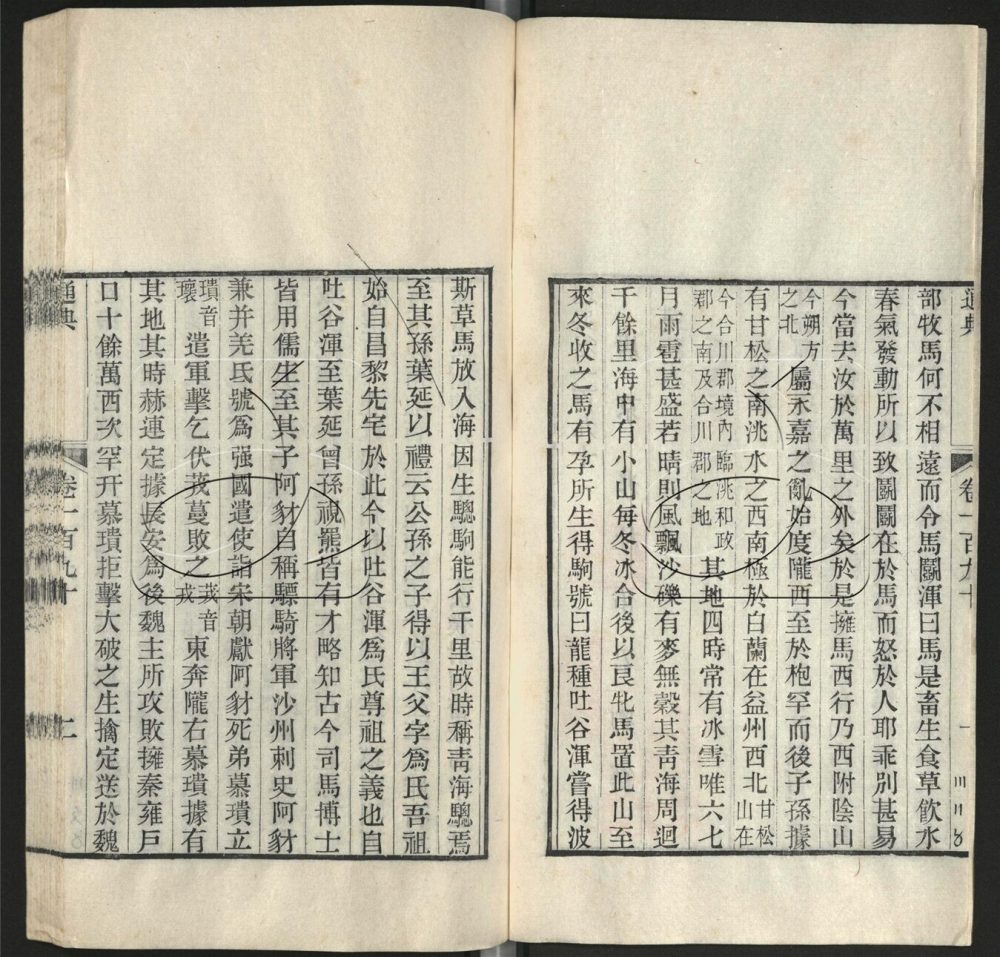 通典
卷一百九十
一
部牧馬何不相遠而令馬鬭渾曰馬是畜生食草飮水
春氣發動所以致鬭鬭在於馬而怒於人耶乖別甚易
今當去汝於萬里之外矣於是擁馬西行乃西附陰山
今朔方之北屬永嘉之亂始度隴西至於枹罕而後子孫據
有甘松之南洮水之西南極於白蘭在益州西北甘松山在
今合川郡境內臨洮和政郡之南及合川郡之地其地四時常有冰雪唯六七
月雨雹甚盛若晴則風飄沙礫有麥無穀其靑海周迴
千餘里海中有小山每冬冰合後以良牝馬置此山至
來冬收之馬有孕所生得駒號曰龍種吐谷渾嘗得波
斯草馬放入海因生驄駒能行千里故時稱靑海驄焉
至其孫葉延以禮云公孫之子得以王父字爲氏吾祖
始自昌黎先宅於此今以吐谷渾爲氏尊祖之義也自
吐谷渾至葉延曾孫視羆皆有才略知古今司馬博士
皆用儒生至其子阿豺自稱驃騎將軍沙州刺史阿豺
兼并羌氏號爲强國遣使詣宋朝獻阿豺死弟慕璝立
璝音瓌遣軍擊乞伏茂蔓敗之茂音戎東奔隴右慕璝據有
其地其時赫連定據長安爲後魏主所攻敗擁秦雍戶
口十餘萬西次罕幵慕璝拒擊大破之生擒定送於魏
通典
卷一百九十
二